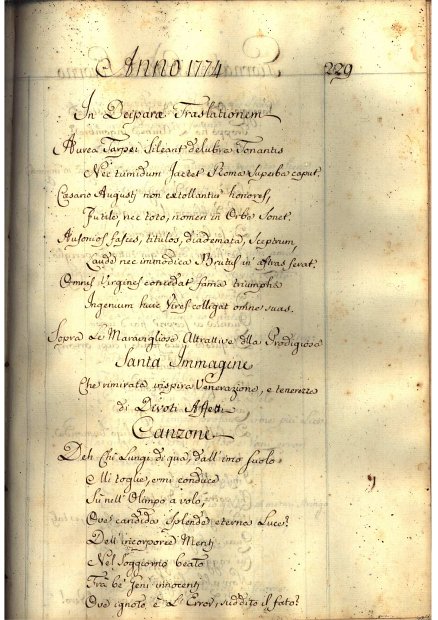 Anno 1774
229
In Deiparæ Traslationem
Aurea Tarpei Sileant delubra Tonantis
Nec tumidum Jactet Roma Superba caput.
Cesario Augusti non extollantur honores,
Jutile, nec toto, nomen in Orbe Sonet.
Ausonios fasces, titulos, diademata, Sceptrum,
Laude nec immodica Brutus in astras ferat.
Omnis Virgineo concedat fama triumpho
Ingenium huic Vires colligat omne suas.
Sopra Le Maravigliose Attrattive della Prodigiosa
Santa Immagine
Che rimirata inspira Venerazione, e tenerezza
di Divoti Affetti
Canzone
Deh Chi Lungi di quà, dall'imo suolo
Mi toglie, e mi conduce
Sù nell'Olimpo a volo,
Ove candida Splende eterna Luce?
Dell'incorporee Menti
Nel Soggiorno beato
Frà be' Seni innocenti
Ove ignoto è L'Error, suddito il fato?